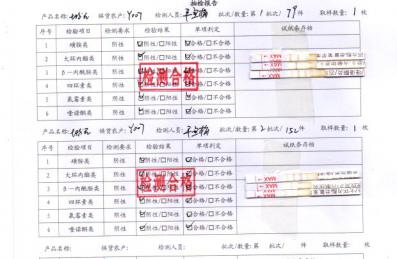 抽检报告
产品名称: 供货农户: Y007 检测人员: 批次/数量:第1批次/79件 取样数量:1枚
序号 检验项目 检测要求 检验结果 单项判定 试纸条存档
1 磺胺类 阴性 ☑阴性/□阳性 ☑合格/□不合格
2 大环内酯类 阴性 ☑阴性/□阳性 ☑合格/□不合格
3 β-内酰胺类 阴性 ☑阴性/□阳性 ☑合格/□不合格
4 四环素类 阴性 ☑阴性/□阳性 ☑合格/□不合格
5 氟霉素类 阴性 ☑阴性/□阳性 ☑合格/□不合格
6 喹诺酮类 阴性 ☑阴性/□阳性 ☑合格/□不合格
检测合格
MAX
MAX
产品名称: 供货农户: Y007 检测人员: 批次/数量:第2批次/152件 取样数量:1枚
序号 检验项目 检测要求 检验结果 单项判定 试纸条存档
1 磺胺类 阴性 ☑阴性/□阳性 ☑合格/□不合格
2 大环内酯类 阴性 ☑阴性/□阳性 ☑合格/□不合格
3 β-内酰胺类 阴性 ☑阴性/□阳性 ☑合格/□不合格
4 四环素类 阴性 ☑阴性/□阳性 ☑合格/□不合格
5 氟霉素类 阴性 ☑阴性/□阳性 ☑合格/□不合格
6 喹诺酮类 阴性 ☑阴性/□阳性 ☑合格/□不合格
检测合格
MAX
MAX
MAX
产品名称: 供货农户: 检测人员: 批次/数量:第 批次/ 件 取样数量: 枚